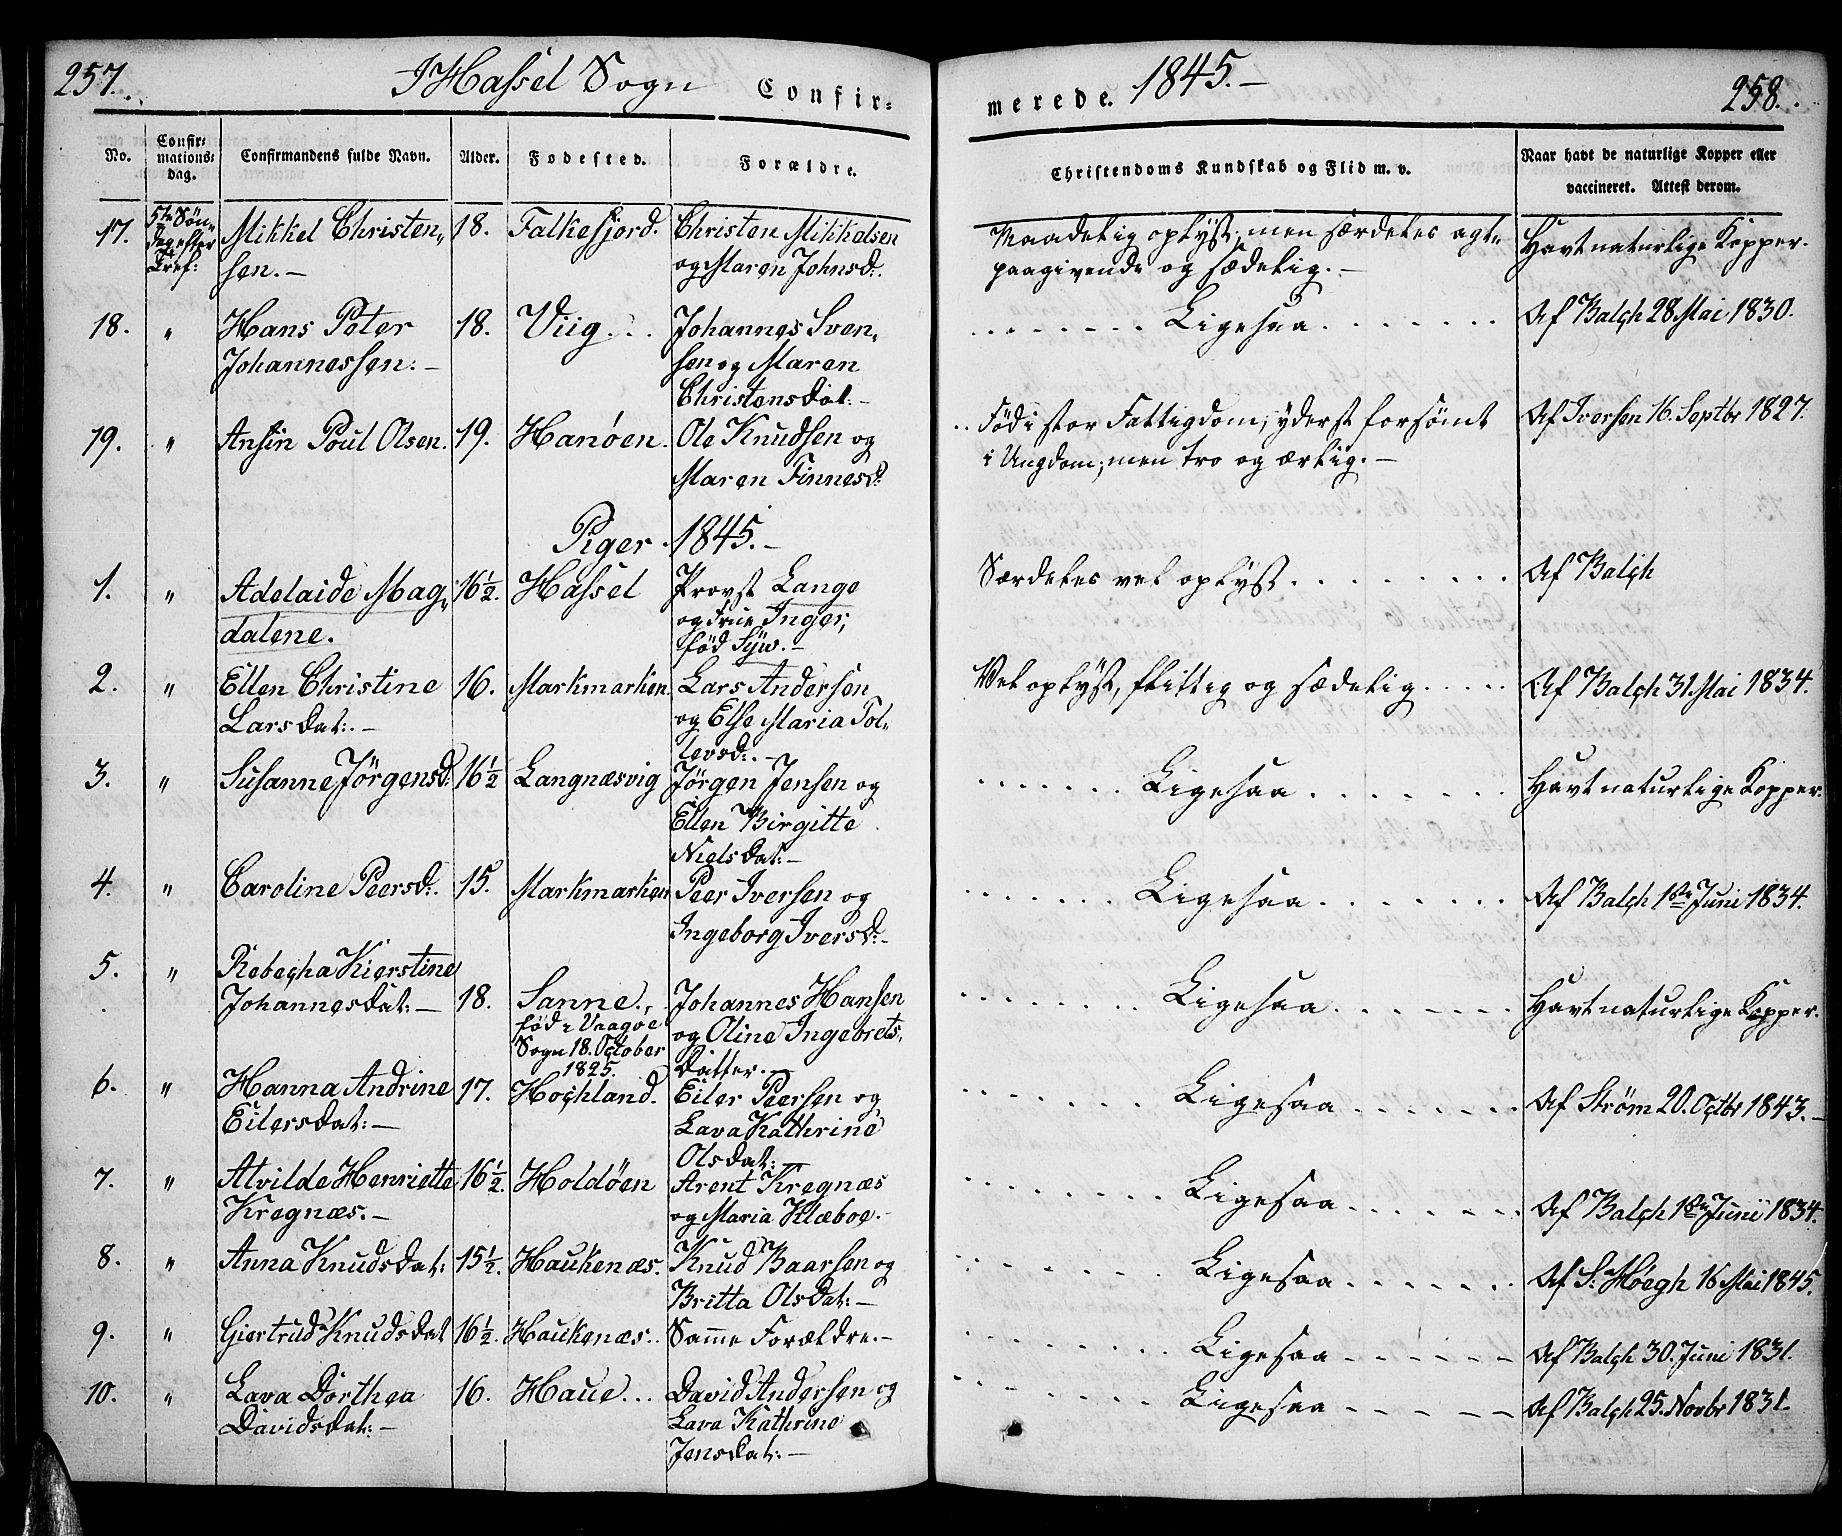 257. I Hassel Sogn Confir-
No.
Confir-
mations-
dag.
Confirmandens fulde Navn.
Alder.
Fødested.
Forældre.
17. 5te Søn-
dag efter
Tref:
Mikkel Christen-
sen.-
18. Falkefjord.
Christen Mikkelsen
og Maren Johnsd:.
18. " Hans Peter
Johannessen:-
18. Viig...
Johannes Sven-
sen og Maren
Christensdat:-
19. " Ansin Poul Olsen. 19. Hanøen.
Ole Knudsen og
Maren Finnesd:
Piger 1845.-
1. " Adelaide Mag-
dalene.
16½. Hassel
Provst Lange
og Frue Inger,
fød Syw.-
2. " Ellen Christine
Larsdat:.-
16. Markmarken
Lars Andersen
og Else Maria Tol-
levsd:.-
3. " Susanne Jørgensd: 16½ Langnæsvig
Jørgen Jensen og
Ellen Birgitte
Nielsdat:-
4. " Caroline Peersd:. 15. Markmarken
Peer Iversen og
Ingeborg Iversd:-
5. " Rebecha Kierstine
Johannesdat:-
18. Sanne.,
fød i Vaagøe
Sogn 18. October
1825.
Johannes Hansen
og Oline Ingebrets-
datter.-
6. " Hanna Andrine
Eilersdat:-
17. Hochland.
Eiler Peersen og
Lava Kathrine
Olsdat:
7. " Alvilde Henriette
Kregnæs.-
16½. Holdøen
Arent Kregnæs
og Maria Klæboe.-
8. " Anna Knudsdat: 15½. Haukenæs.
Knud Baarsen og
Britta Olsdat:-
9. " Giertrud Knudsdat 16½. Haukenæs.. Samme Forældre.-
10. " Lava Dorthea
Davidsdat:-
16. Haue...
David Andersen og
Lava Kathrine
Jensdat:-
merede. 1845.- 258.
Christendoms Kundskab og Flid m. v.
Naar havt de naturlige Kopper eller
vaccineret. Attest derom.
Maadelig oplyst; men særdeles agt-
paagivende og sædelig.-
Havt naturlige Kopper.
Ligesaa
Af Balch 28 Mai 1830.
Fød i stor Fattigdom; yderst forsømt
i Ungdom; men tro og ærlig.-
Af Iversen 16. Septbr 1827.
Særdeles vel oplyst
Af Balch
Vel oplyst, flittig og sædelig
Af Balch 31 Mai 1834.
Ligesaa
Havt naturlige Kopper.
Ligesaa
Af Balch 1ste Juni 1834.
Ligesaa
Havt naturlige Kopper.
Ligesaa
Af Strøm 20. Octbr 1843.-
Ligesaa
Af Balch 1ste Juni 1834.
Ligesaa
Af S. Høegh 16 Mai 1845.
Ligesaa
Af Balch 30. Juni 1831.
Ligesaa
Af Balch 25. Novbr 1831.